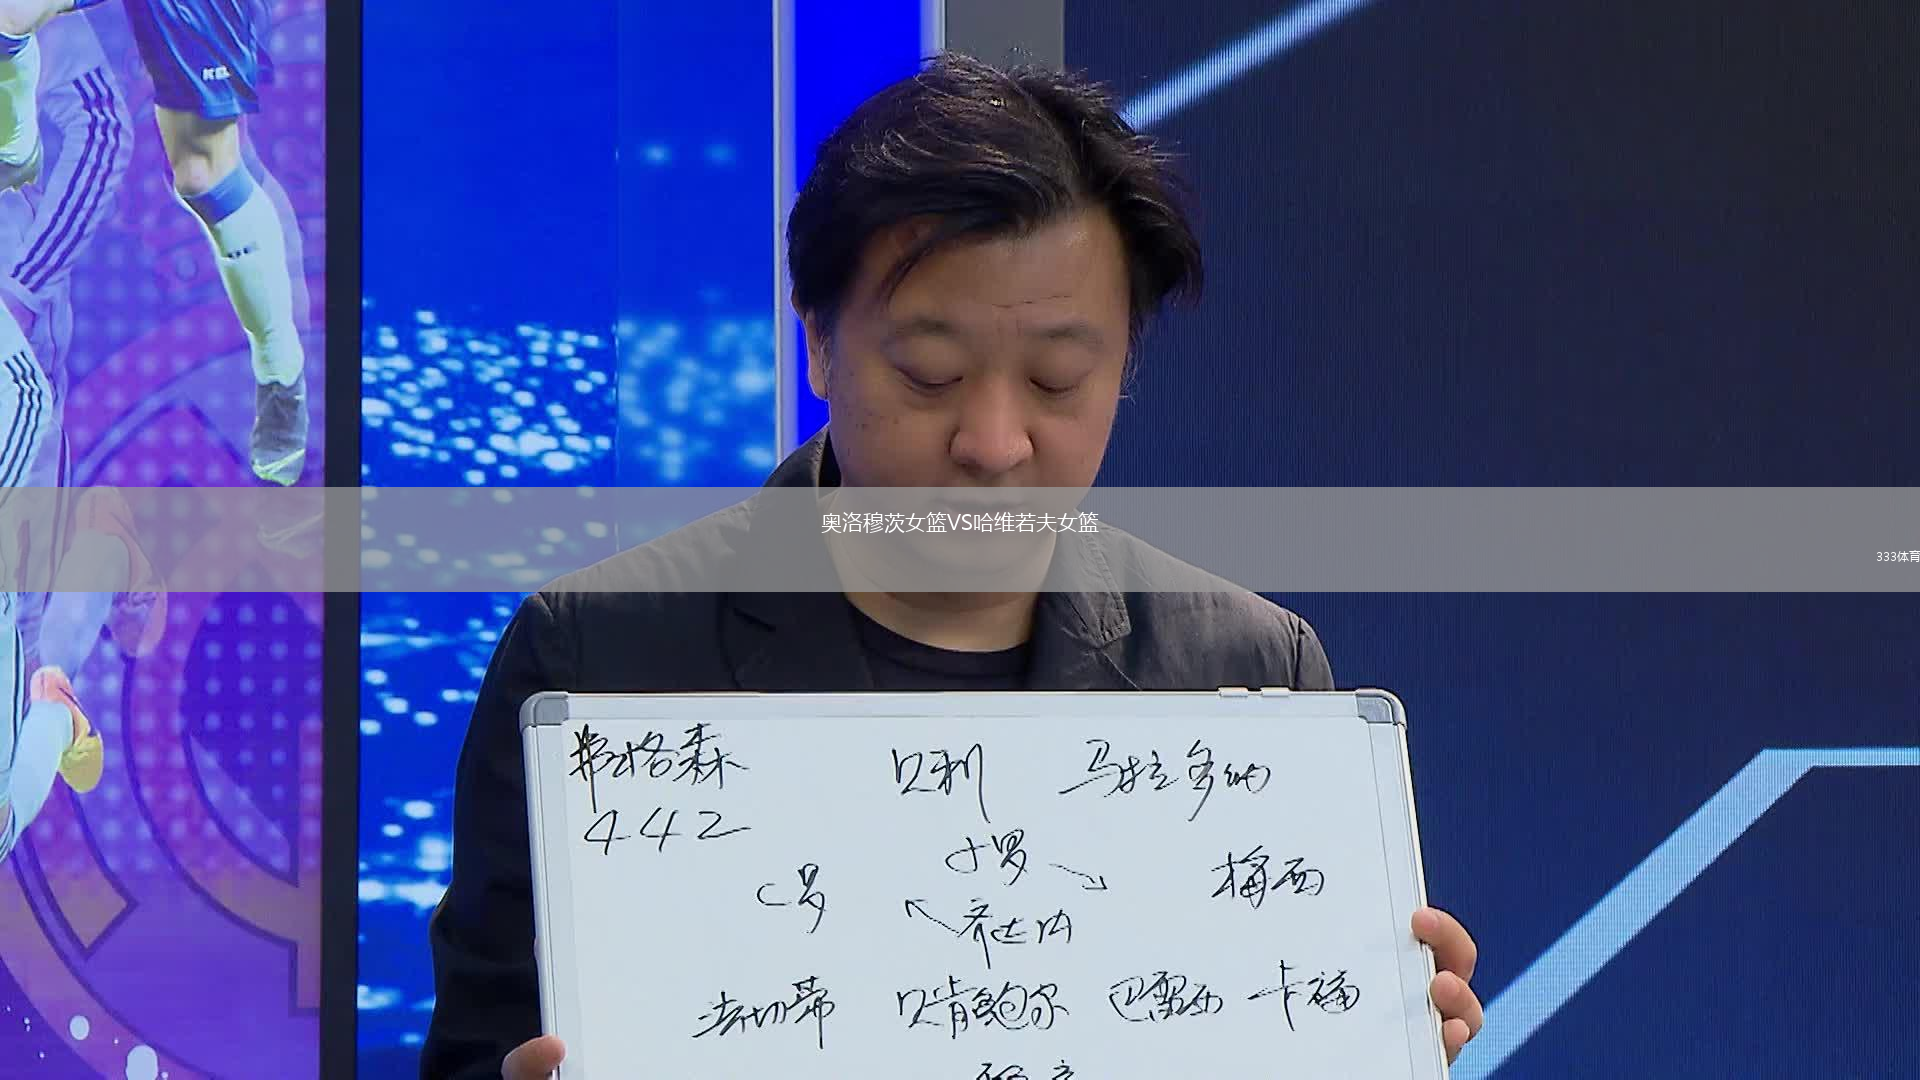 奥洛穆茨女篮VS哈维若夫女篮
333体育
弗格森 贝利 马拉多纳
442
小罗
C罗 梅西
齐达内
法切蒂 贝肯鲍尔 巴雷西 卡福